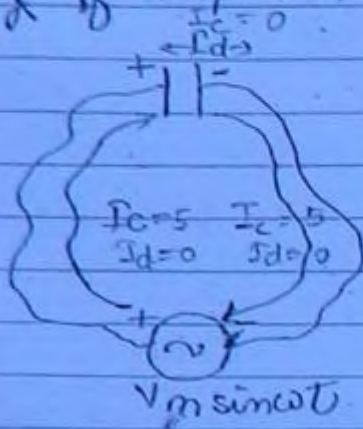 Ic = 0
Id
+ -
Ic=5 Ic=5
Id=0 Id=0
+
~
Vm sinωt